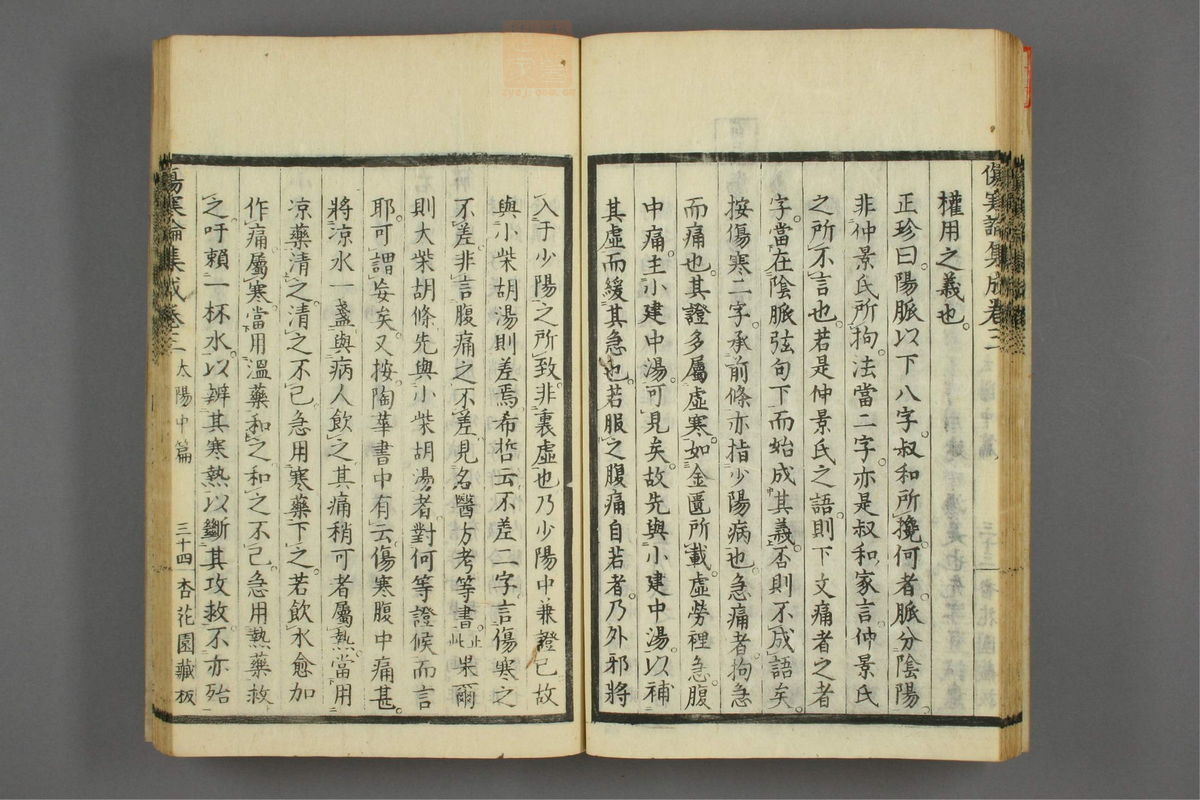 傷寒論集成卷三
權用之義也。
正珍曰陽脈以下八字叔和所攙何者脈分陰陽
非仲景氏所拘。法當二字亦是叔和家言。仲景氏
之所不言也。若是仲景氏之語。則下文痛者之者
字。當在陰脈弦句下而始成其義。否則不成語矣。
按傷寒二字。承前條亦指少陽病也。急痛者拘急
而痛也。其證多屬虛寒。如金匱所載。虛勞裡急腹
中痛。主小建中湯。可見矣。故先與小建中湯。以補
其虛而緩其急也。若服之腹痛自若者。乃外邪將
入于少陽之所致。非裏虛也乃少陽中兼證已故
與小柴胡湯則差焉。希哲云不差二字。言傷寒之
不差。非言腹痛之不差。見名醫方考等書。止此果爾
則大柴胡條。先與小柴胡湯者。對何等證候而言
耶。可謂妄矣。又按陶華書中有云。傷寒腹中痛甚。
將凉水一盞與病人飲之。其痛稍可者屬熱。當用
凉藥清之。清之不已。急用寒藥下之。若飲水愈加
作痛屬寒。當用溫藥和之。和之不已。急用熱藥救
之。吁賴一杯水。以辨其寒熱。以斷其攻救。不亦殆
傷寒論集成卷三 太陽中篇 三十四 杏花園藏板